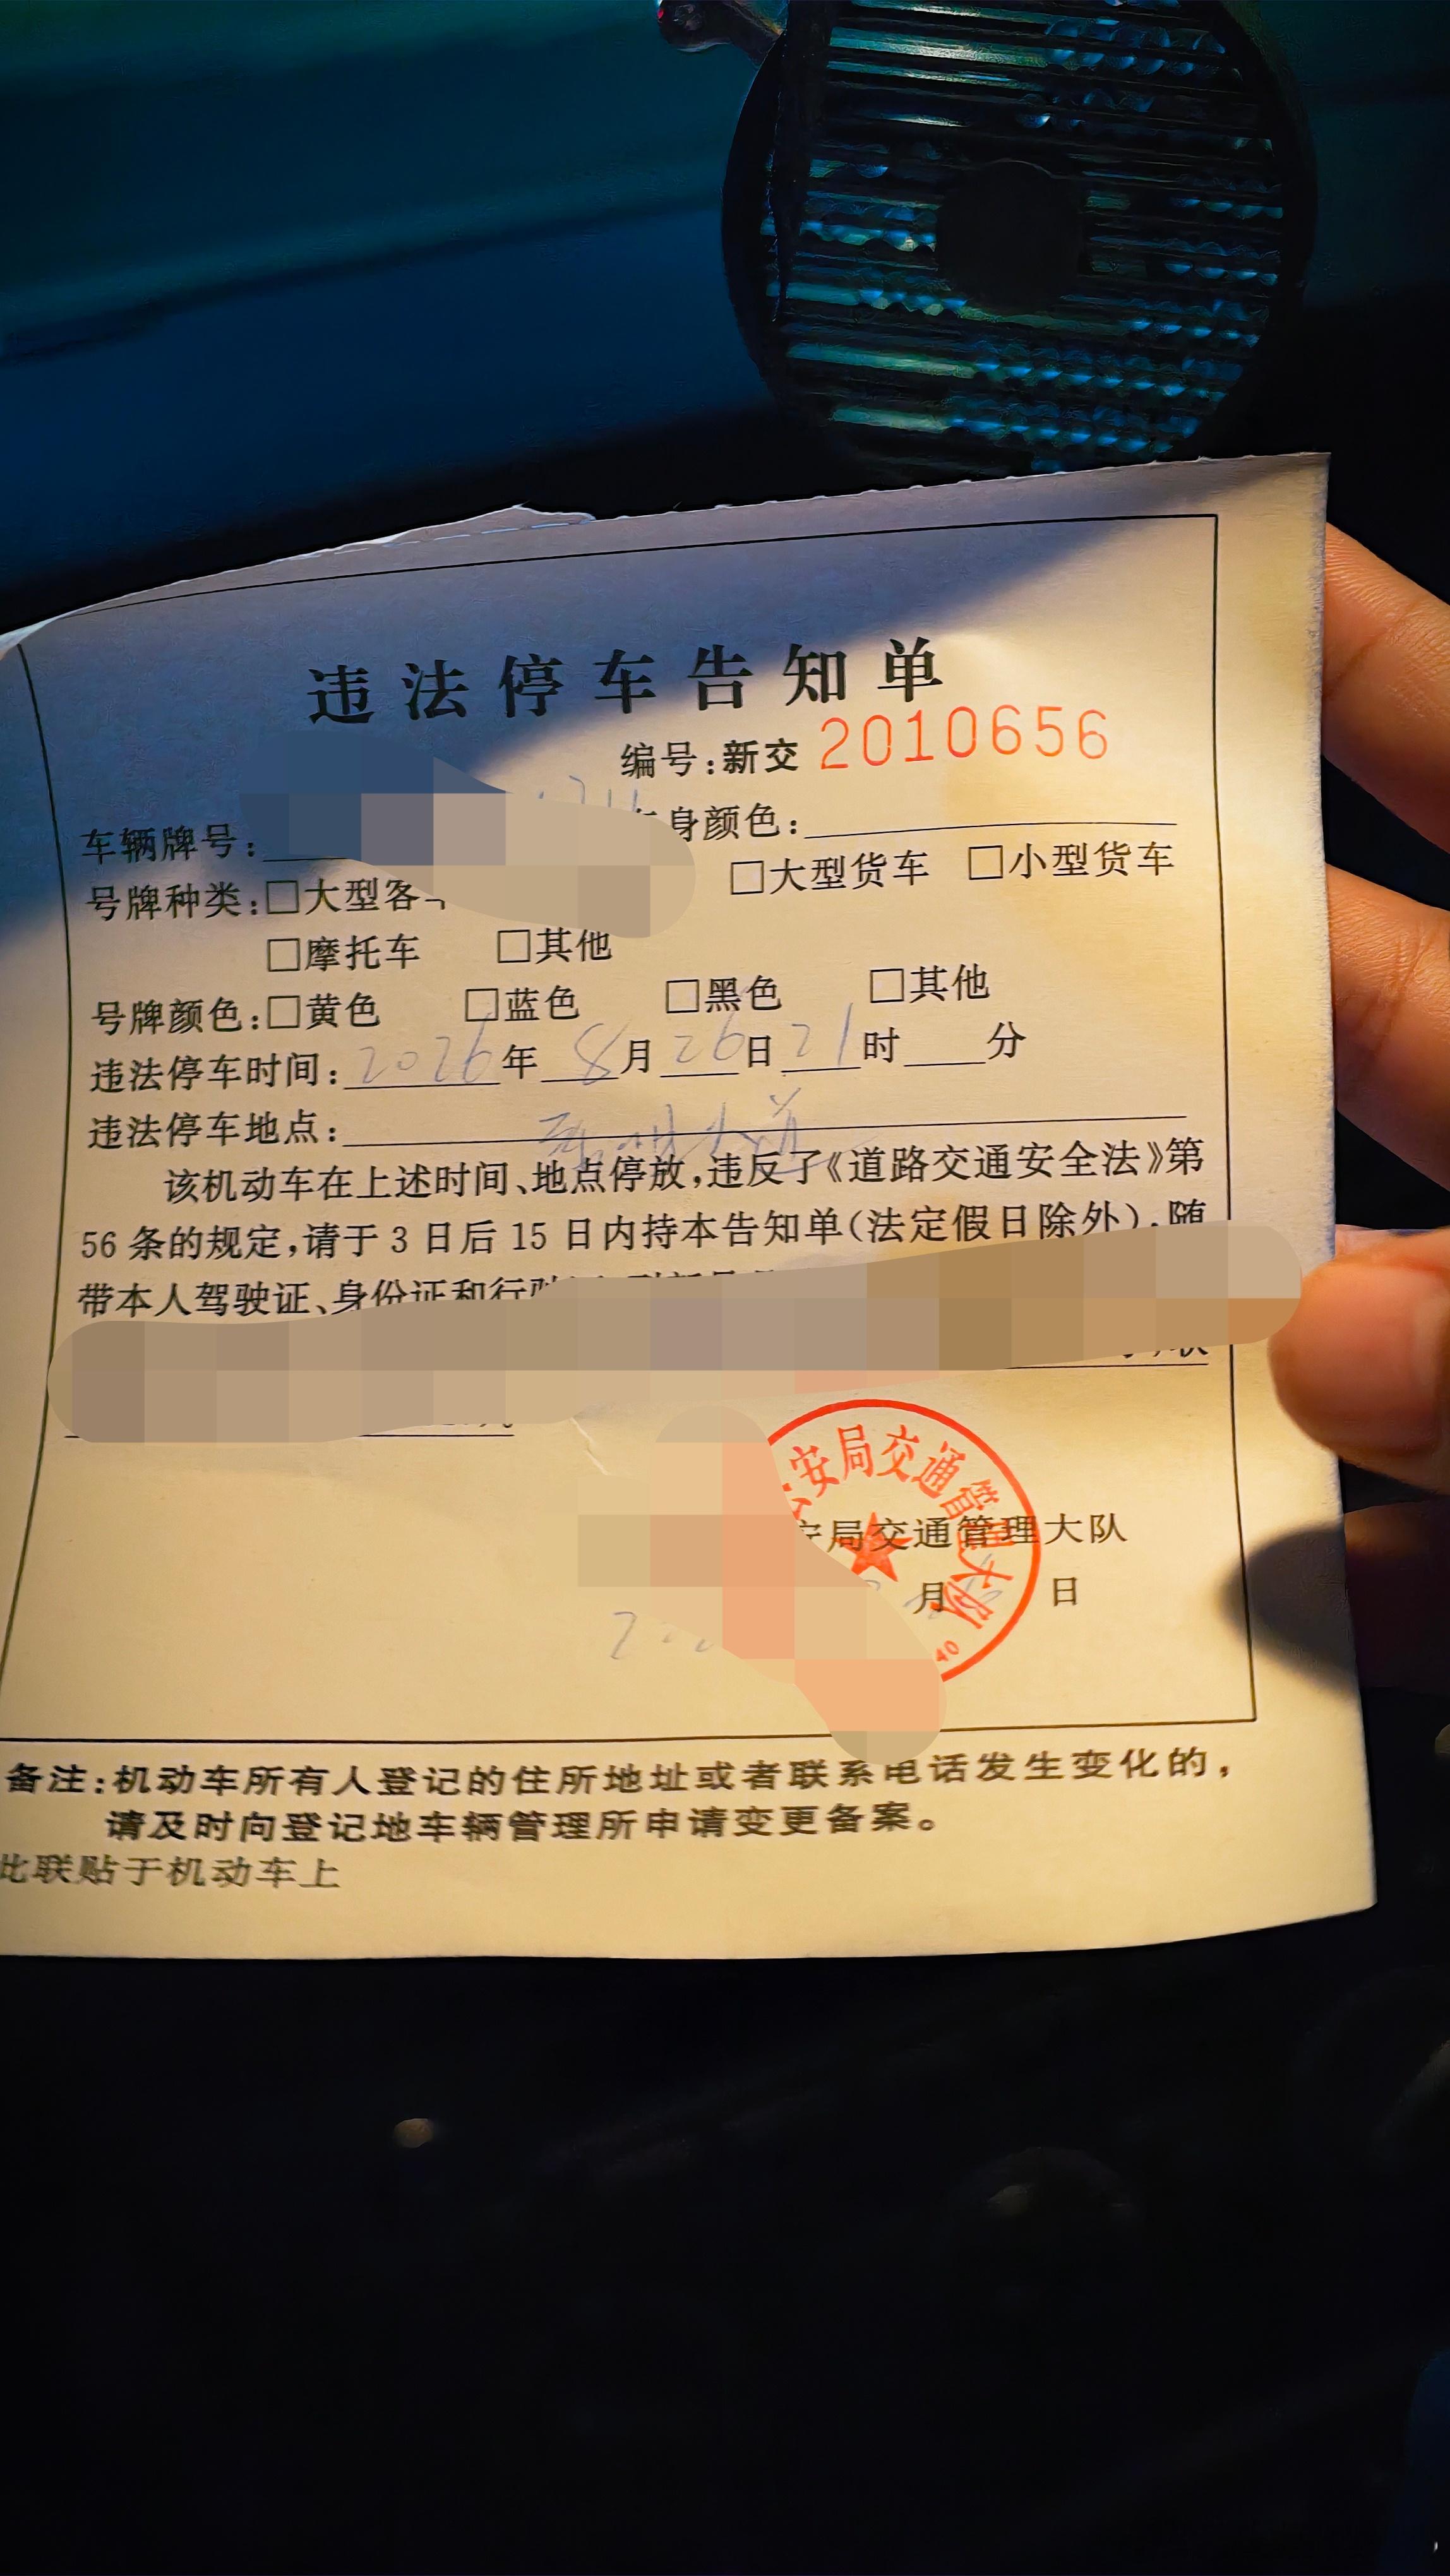 违法停车告知单
编号:新交 2010656
车辆牌号: 身颜色:
号牌种类:□大型客 □大型货车 □小型货车
□摩托车 □其他
号牌颜色:□黄色 □蓝色 □黑色 □其他
违法停车时间: 2026年 8月 26日 21时 分
违法停车地点: 大道
该机动车在上述时间、地点停放,违反了《道路交通安全法》第
56条的规定,请于3日后15日内持本告知单(法定假日除外),随
带本人驾驶证、身份证和行
安局交通管理大队
局交通管理大队
月 日
40
备注:机动车所有人登记的住所地址或者联系电话发生变化的,
请及时向登记地车辆管理所申请变更备案。
此联贴于机动车上